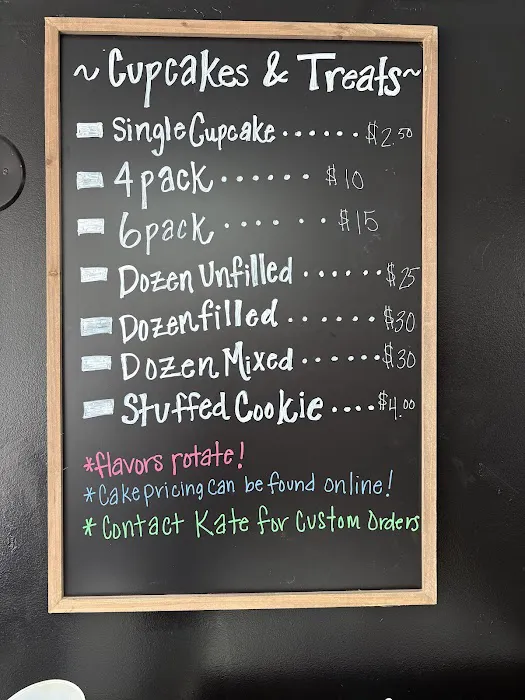 ~ Cupcakes & Treats ~
Single Cupcake ...... $2.50
4 pack ...... $10
6 pack ...... $15
Dozen Unfilled ...... $25
Dozen filled ...... $30
Dozen Mixed ...... $30
Stuffed Cookie .... $4.00
*flavors rotate!
*Cake pricing can be found online!
* Contact Kate for Custom Orders